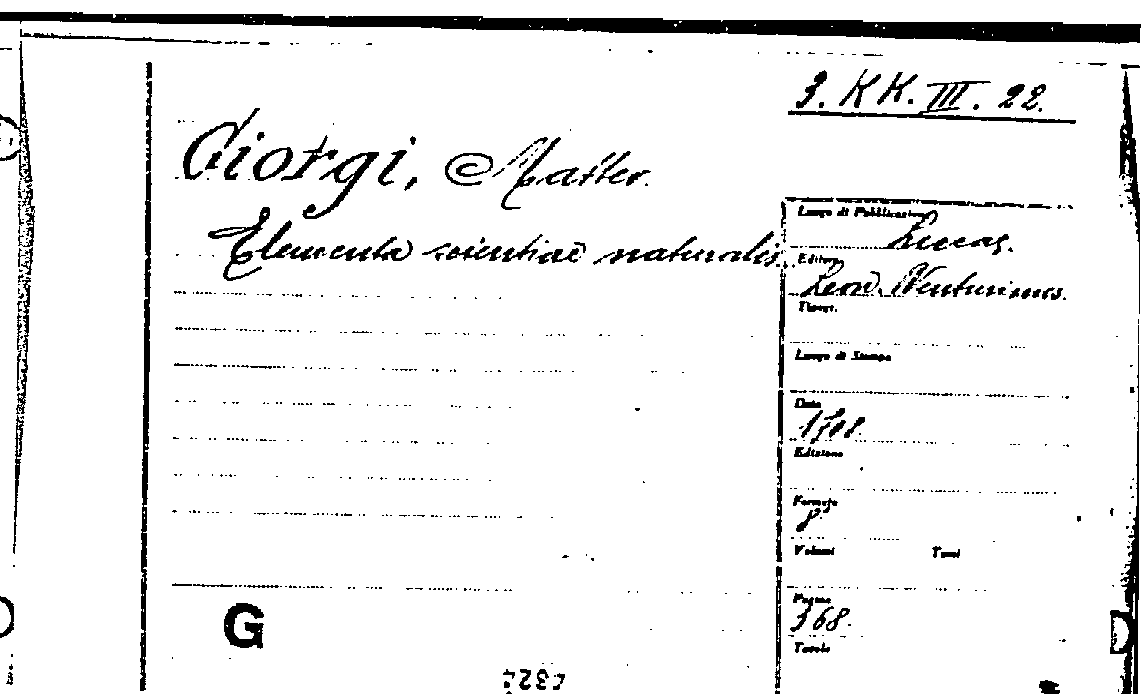 3. KK. III. 22.
Giorgi, Matter.
Elementa scientiae naturalis.
Luogo di Pubblicazione
Luccas.
Editore
Leon. Venturinus.
Luogo di Stampa
Data
Edizione
Formato
Volumi Tomi
Pagine
368.
Tavole
G